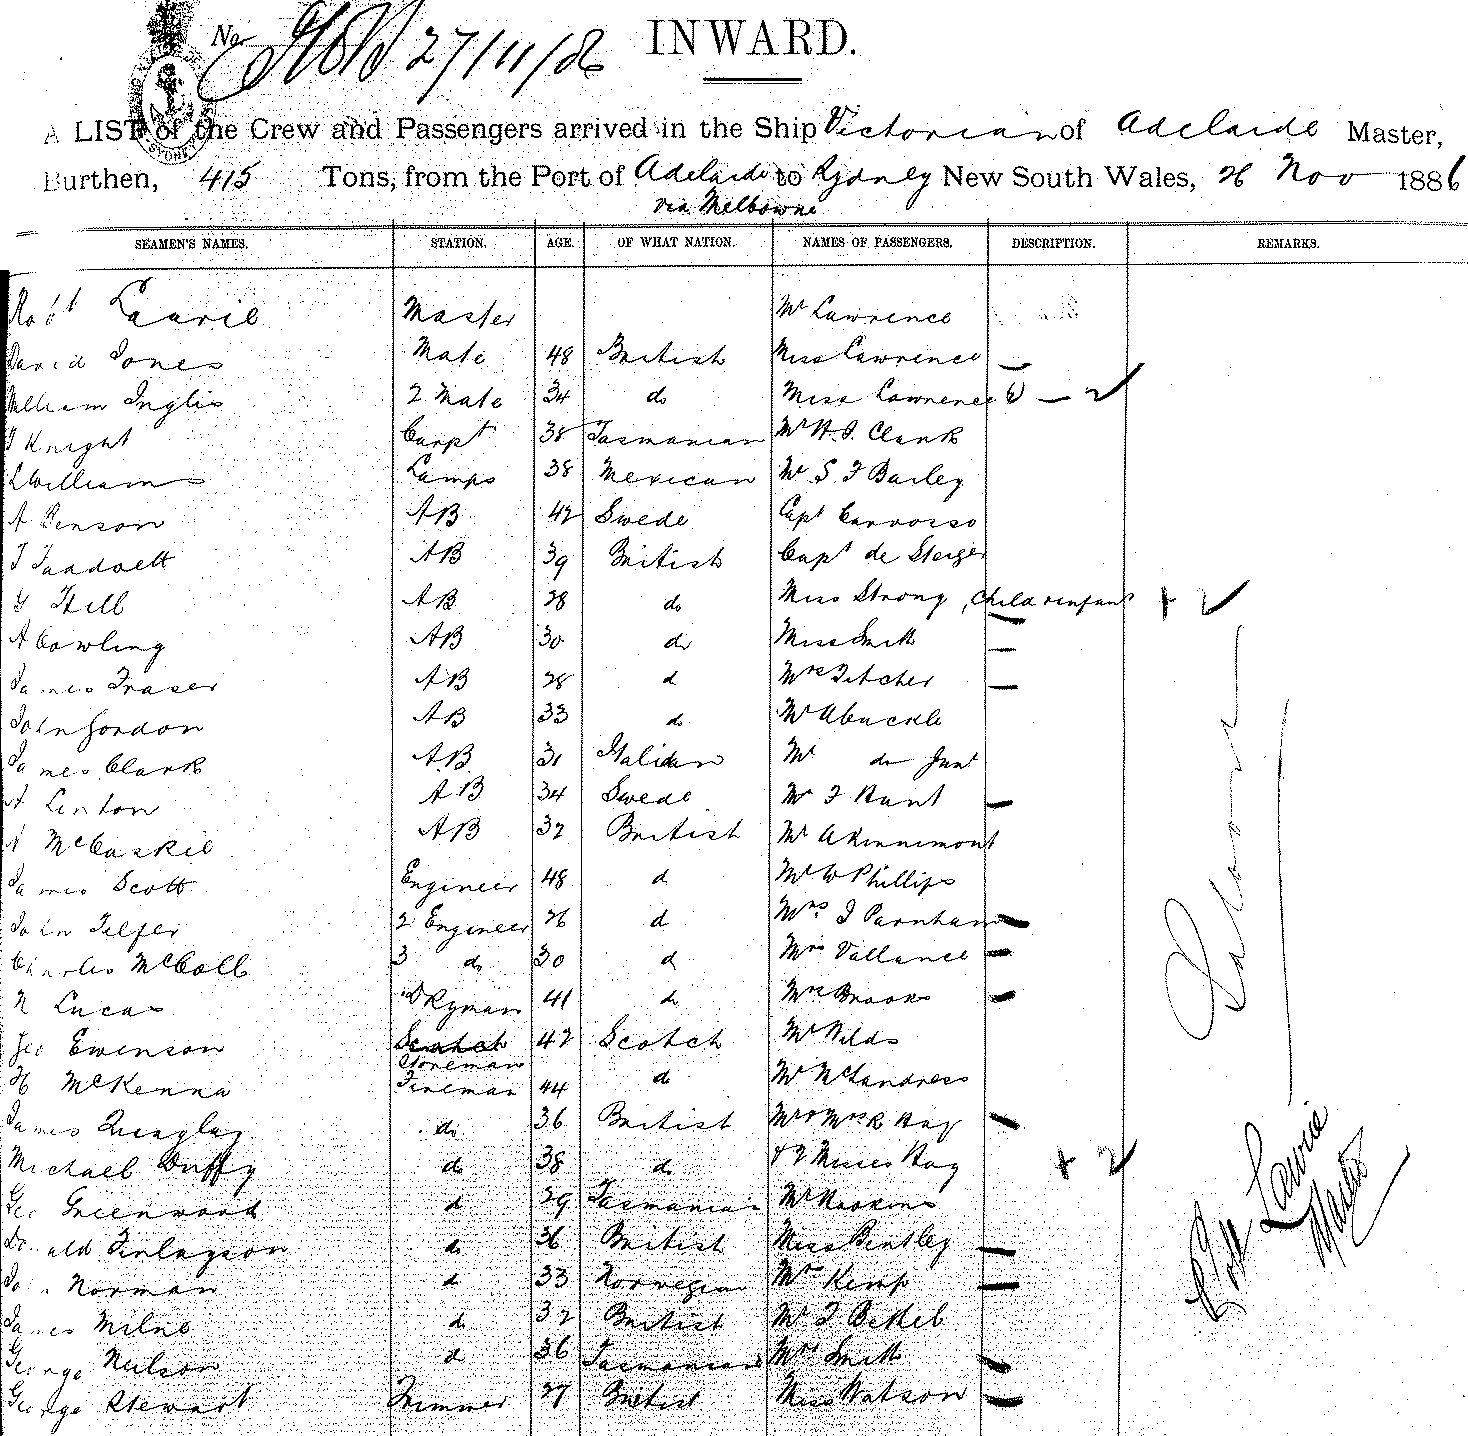 No. 27/11/86 INWARD.
A LIST of the Crew and Passengers arrived in the Ship Victorian of Adelaide Master,
Burthen, 415 Tons, from the Port of Adelaide to Sydney New South Wales, 26 Nov 1886
via Melbourne
SEAMEN'S NAMES. STATION. AGE. OF WHAT NATION. NAMES OF PASSENGERS. DESCRIPTION. REMARKS.
Robt Laurie Master Mr Lawrence
David Jones Mate 48 British Miss Lawrence
William Inglis 2 Mate 34 do Miss Lawrence
J Knight Carpt 38 Tasmanian Mr H. J. Clark
Williams Lamps 38 Mexican Mr S F Bailey
A Benson AB 42 Swede Capt Carvosso
AB 39 British Capt de Steiger
G Hill AB 28 do Miss Strong, Child & infant + 2
A Cowling AB 30 do Miss Smith
James Fraser AB 28 d Mrs Fitcher
John Gordon AB 33 do Mr Abuckle
James Clark AB 31 Italian Mr do Junr
A Linton AB 34 Swede Mr F Hunt
McCaskil AB 32 British Mr A Kinnimont
James Scott Engineer 48 d Mr W Phillips
John Telfer 2 Engineer 26 d Mrs J Parnham
Charles McColl 3 do 30 d Mrs Vallance
N Lucas Dkyman 41 do Mrs Brooks
Geo Ewenson Scotch Storeman 42 Scotch Mr Wilds
H McKenna Fireman 44 d Mr McLandress
James Quigley do 36 British Mr & Mrs R Hay
Michael Duffy d 38 d & 2 Misses Hay + 2
Geo Greenwood d 29 Tasmanian Mr Hoskins
Donald Finlayson d 36 British Miss Bentley
Norman d 33 Norwegian Mr Kemp
James Milne do 32 British Mr J
George Neilson d 36 Tasmanian Mrs Smith
George Stewart Trimmer 27 British Miss Watson
Saloons
Robt Laurie
Master